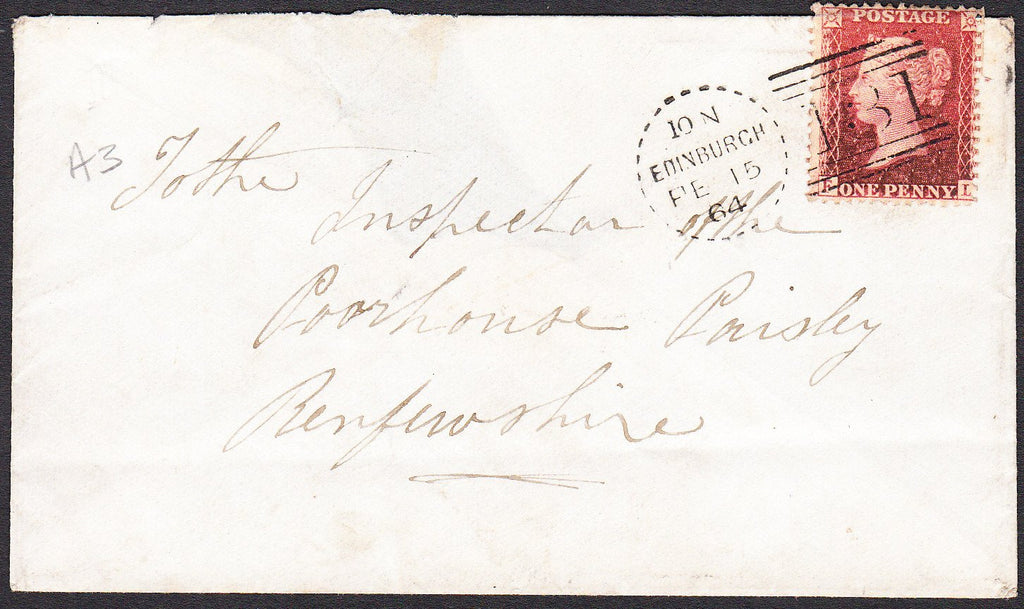 POSTAGE
131
F ONE PENNY L
10 N
EDINBURGH
FE 15
64
A3
To the
Inspector of the
Poorhouse Paisley
Renfewshire